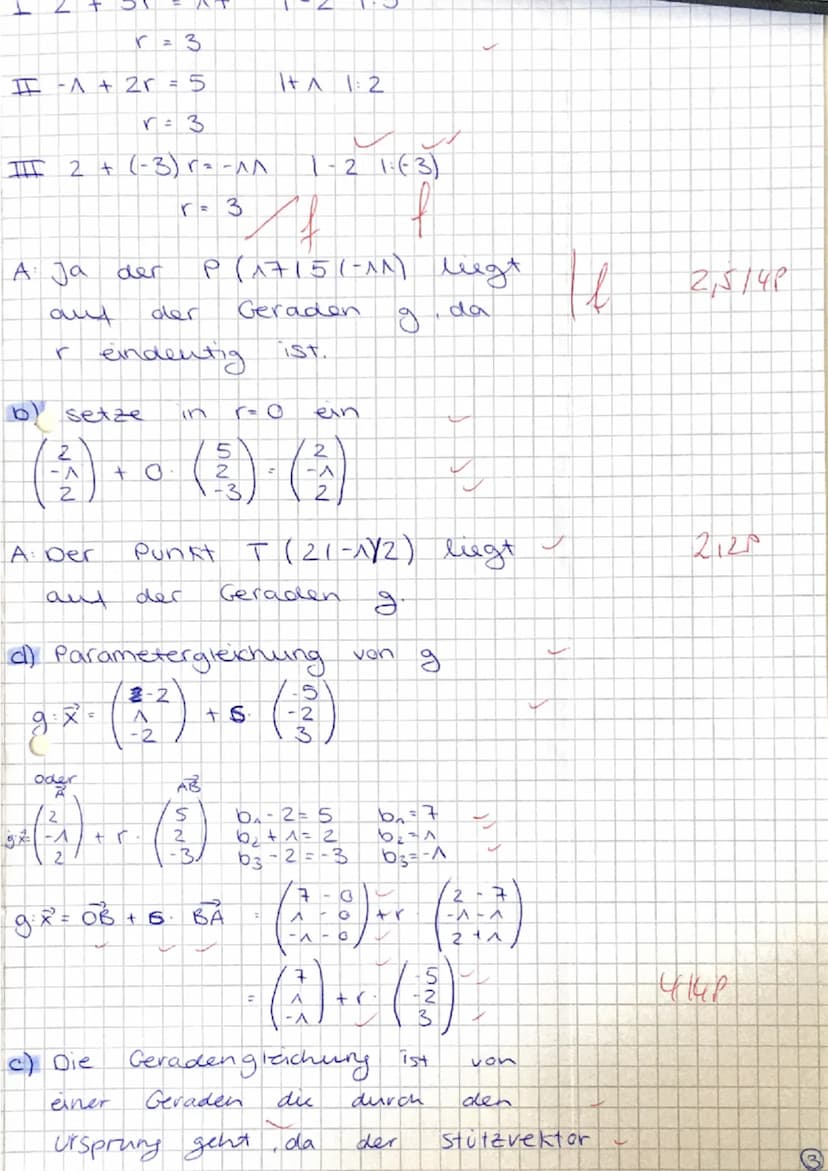 I 2 + 5r = 17 |-2 |:5
r = 3
II -1 + 2r = 5 |+1 |:2
r = 3
III 2 + (-3)r = -11 |-2 |:(-3)
r = 3 f f
A: Ja der P(17|5|-11) liegt f 2,5/4P
auf der Geraden g, da
r eindeutig ist.
b) setze in r=0 ein
(2 -1 2) + 0 · (5 2 -3) = (2 -1 2)
A: Der Punkt T (2|-1|2) liegt 2,2P
auf der Geraden g.
d) Parametergleichung von g
g: x⃗ = (-2 1 -2) + s · (-5 -2 3)
oder
A⃗ AB⃗
g: x⃗ = (2 -1 2) + r · (5 2 -3) b₁ - 2 = 5 b₁ = 7
b₂ + 1 = 2 b₂ = 1
b₃ - 2 = -3 b₃ = -1
g: x⃗ = OB⃗ + s · BA⃗ = (7-0 1-0 -1-0) + r · (2-7 -1-1 2+1)
= (7 1 -1) + r · (-5 -2 3) 4/4P
c) Die Geradengleichung ist von
einer Geraden die durch den
Ursprung geht, da der Stützvektor
3